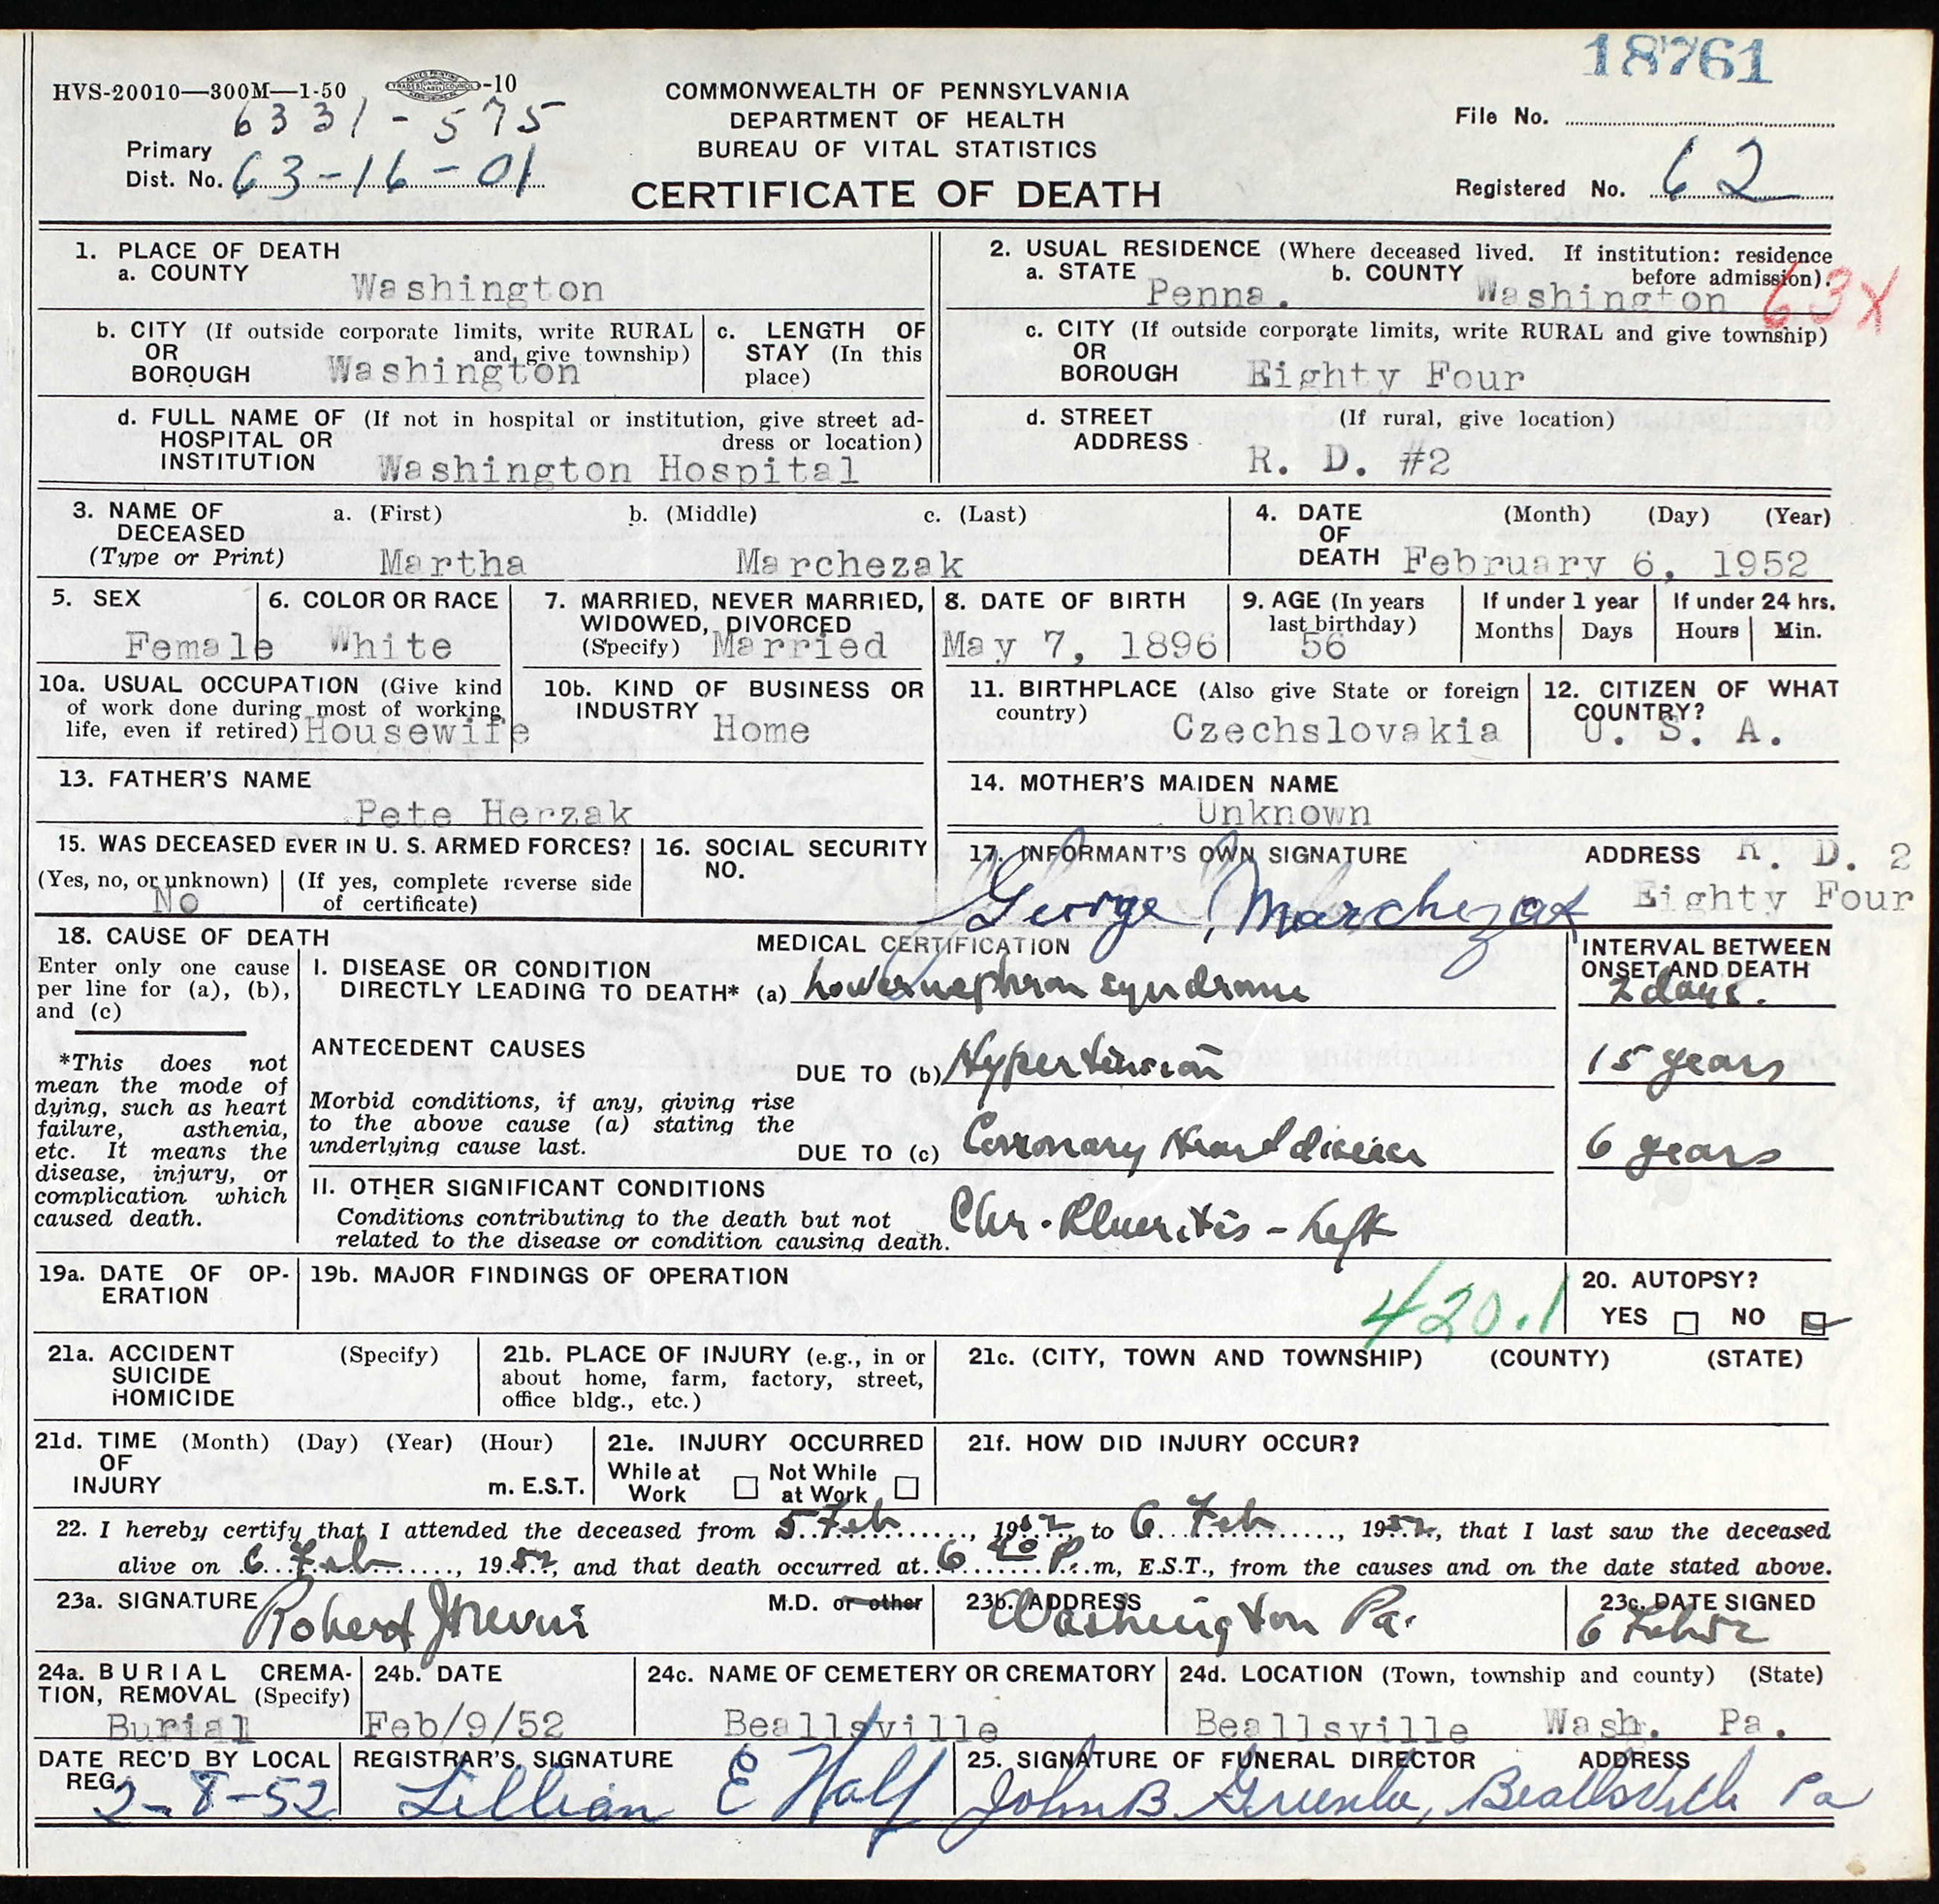 18761
HVS-20010—300M—1-50 -10
6331-575
COMMONWEALTH OF PENNSYLVANIA
DEPARTMENT OF HEALTH
BUREAU OF VITAL STATISTICS
CERTIFICATE OF DEATH
Primary
Dist. No. 63-16-01
File No.
Registered No. 62
1. PLACE OF DEATH
a. COUNTY
Washington
2. USUAL RESIDENCE (Where deceased lived. If institution: residence
before admission).
a. STATE Penna. b. COUNTY Washington 63X
b. CITY (If outside corporate limits, write RURAL
OR and give township)
BOROUGH Washington
c. LENGTH OF
STAY (In this
place)
c. CITY (If outside corporate limits, write RURAL and give township)
OR
BOROUGH Eighty Four
d. FULL NAME OF (If not in hospital or institution, give street ad-
HOSPITAL OR dress or location)
INSTITUTION Washington Hospital
d. STREET (If rural, give location)
ADDRESS R. D. #2
3. NAME OF a. (First) b. (Middle) c. (Last)
DECEASED
(Type or Print) Martha Marchezak
4. DATE (Month) (Day) (Year)
OF
DEATH February 6, 1952
5. SEX
Female
6. COLOR OR RACE
White
7. MARRIED, NEVER MARRIED,
WIDOWED, DIVORCED
(Specify) Married
8. DATE OF BIRTH
May 7, 1896
9. AGE (In years
last birthday)
56
If under 1 year
Months Days
If under 24 hrs.
Hours Min.
10a. USUAL OCCUPATION (Give kind
of work done during most of working
life, even if retired) Housewife
10b. KIND OF BUSINESS OR
INDUSTRY
Home
11. BIRTHPLACE (Also give State or foreign
country)
Czechslovakia
12. CITIZEN OF WHAT
COUNTRY?
U. S. A.
13. FATHER'S NAME
Pete Herzak
14. MOTHER'S MAIDEN NAME
Unknown
15. WAS DECEASED EVER IN U. S. ARMED FORCES?
(Yes, no, or unknown) (If yes, complete reverse side
of certificate)
No
16. SOCIAL SECURITY
NO.
17. INFORMANT'S OWN SIGNATURE ADDRESS R. D. 2
George Marchezak Eighty Four
18. CAUSE OF DEATH
Enter only one cause
per line for (a), (b),
and (c)
*This does not
mean the mode of
dying, such as heart
failure, asthenia,
etc. It means the
disease, injury, or
complication which
caused death.
MEDICAL CERTIFICATION
INTERVAL BETWEEN
ONSET AND DEATH
I. DISEASE OR CONDITION
DIRECTLY LEADING TO DEATH* (a) Lower nephron syndrome 2 days.
ANTECEDENT CAUSES
DUE TO (b) Hypertension 15 years
Morbid conditions, if any, giving rise
to the above cause (a) stating the
underlying cause last.
DUE TO (c) Coronary Heart disease 6 years
II. OTHER SIGNIFICANT CONDITIONS
Conditions contributing to the death but not
related to the disease or condition causing death.
Chr. Pleuritis - Left
19a. DATE OF OP-
ERATION
19b. MAJOR FINDINGS OF OPERATION
420.1
20. AUTOPSY?
YES NO
21a. ACCIDENT (Specify)
SUICIDE
HOMICIDE
21b. PLACE OF INJURY (e.g., in or
about home, farm, factory, street,
office bldg., etc.)
21c. (CITY, TOWN AND TOWNSHIP) (COUNTY) (STATE)
21d. TIME (Month) (Day) (Year) (Hour)
OF
INJURY m. E.S.T.
21e. INJURY OCCURRED
While at Not While
Work at Work
21f. HOW DID INJURY OCCUR?
22. I hereby certify that I attended the deceased from 5 Feb, 1952, to 6 Feb, 1952, that I last saw the deceased
alive on 6 Feb, 1952, and that death occurred at 6 40 P.m, E.S.T., from the causes and on the date stated above.
23a. SIGNATURE M.D. or other
Robert
23b. ADDRESS
Washington Pa.
23c. DATE SIGNED
6 Feb 52
24a. BURIAL CREMA-
TION, REMOVAL (Specify)
Burial
24b. DATE
Feb/9/52
24c. NAME OF CEMETERY OR CREMATORY
Beallsville
24d. LOCATION (Town, township and county) (State)
Beallsville Wash. Pa.
DATE REC'D BY LOCAL
REG.
2-8-52
REGISTRAR'S SIGNATURE
Lillian E Half
25. SIGNATURE OF FUNERAL DIRECTOR ADDRESS
John B Beallsville Pa